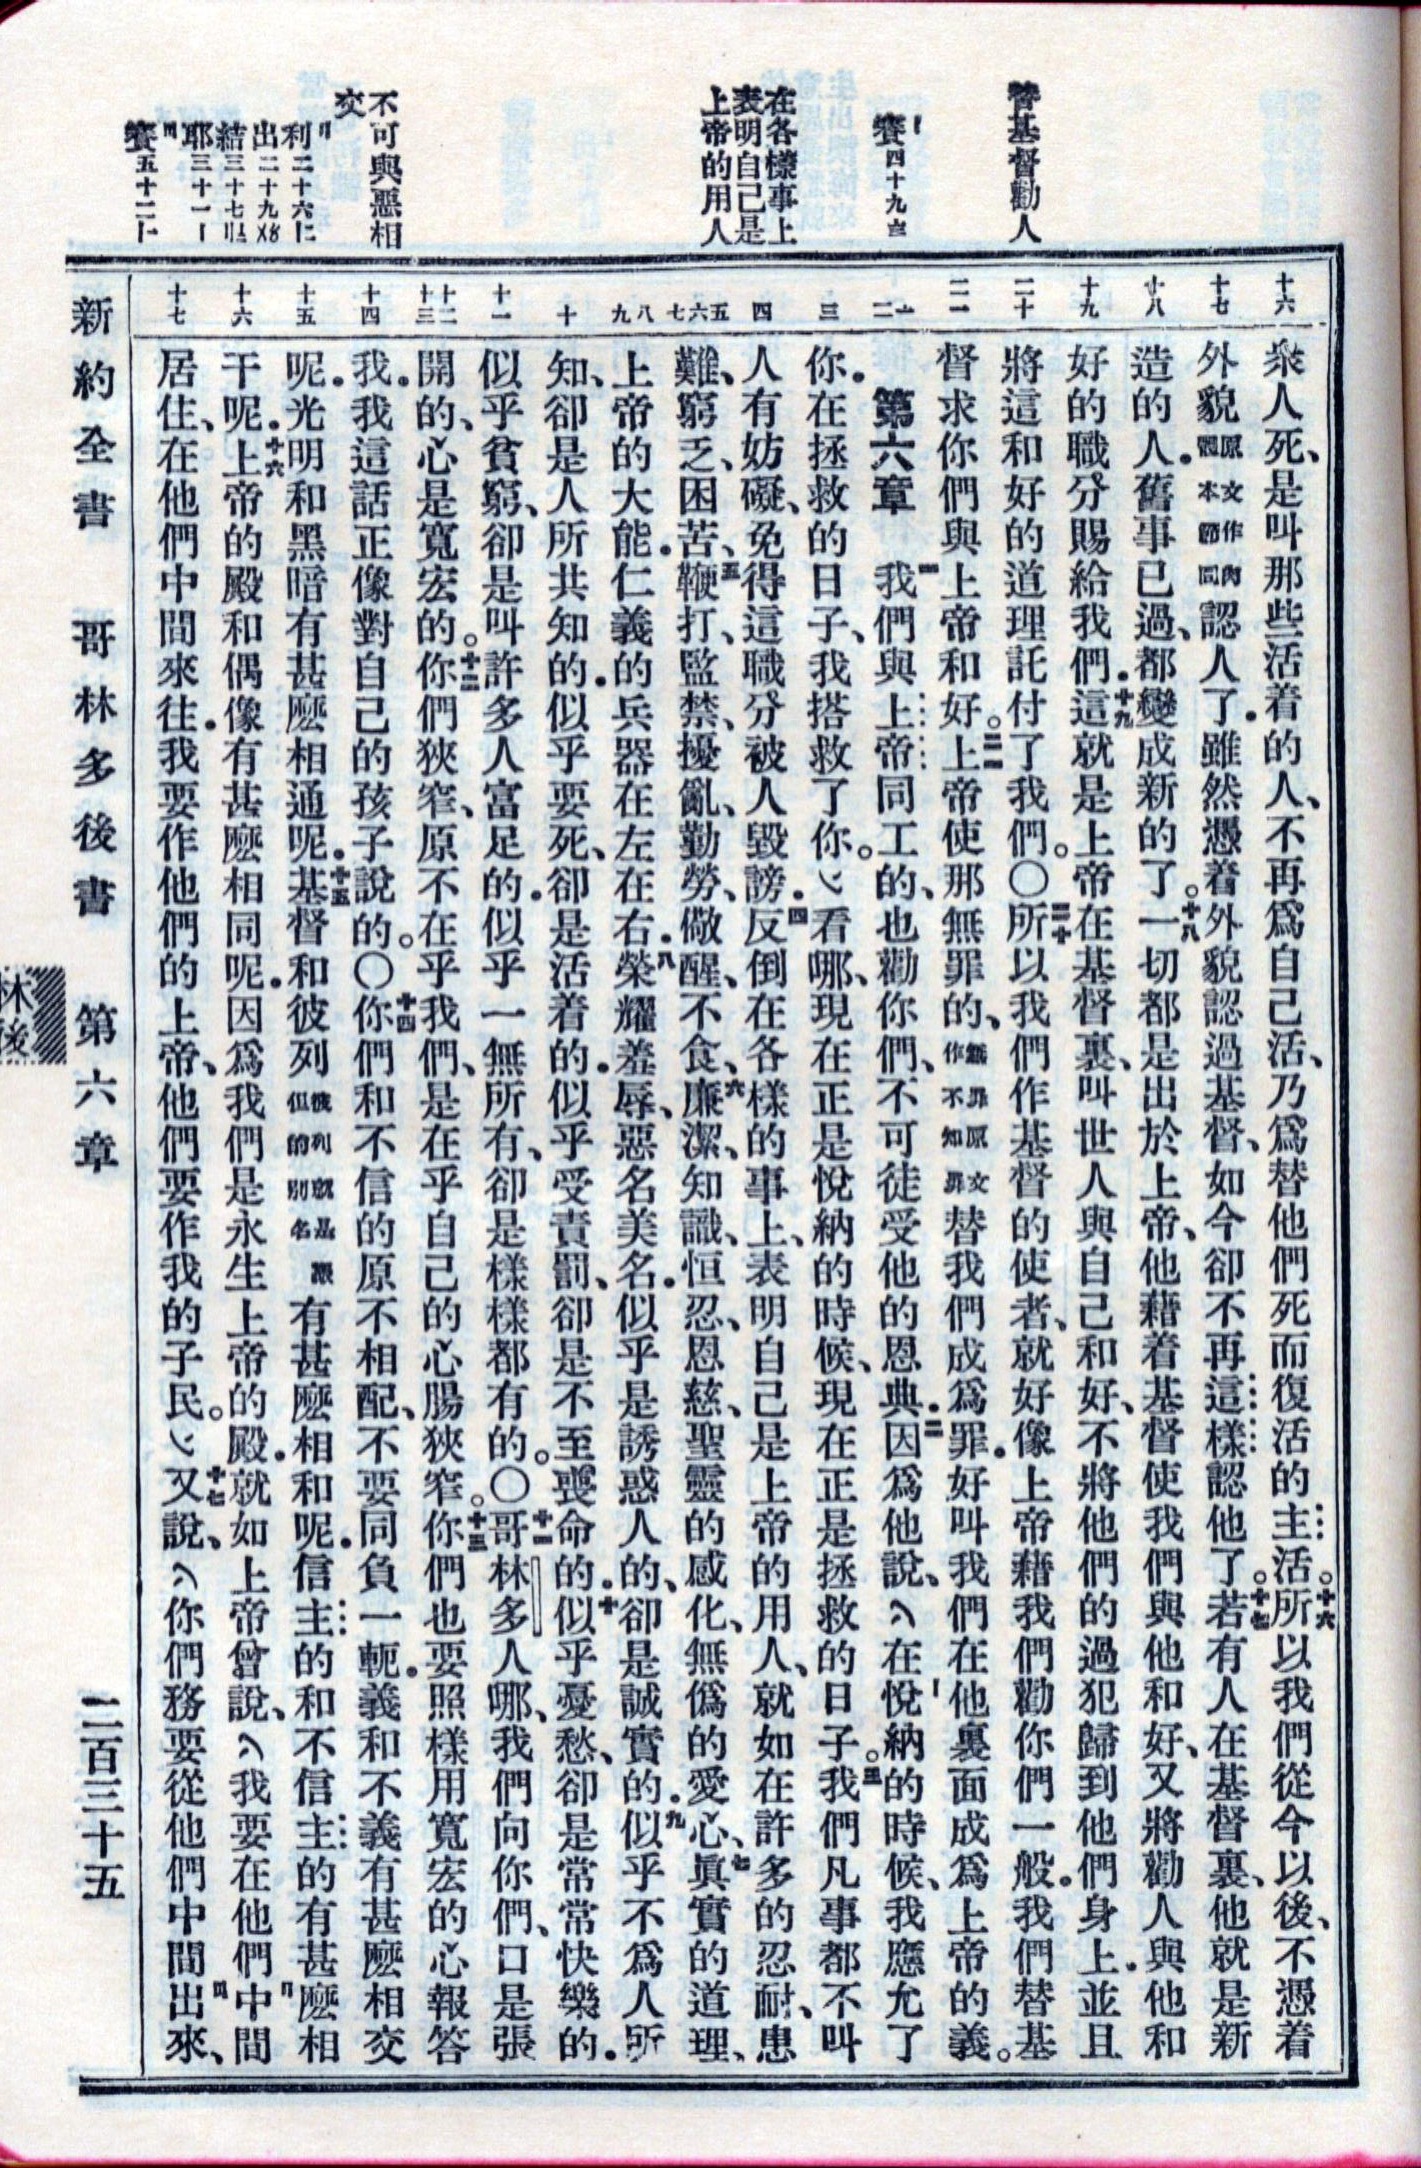 替基督勸人
賽四十九
在各樣事上
表明自己是
上帝的用人
不可與惡相
交
利二十六
出二十九
結三十七
耶三十一
賽五十二
十六
十七
十八
十九
二十
二一
一二
三
四
五六七
八九
十
十一
十二十三
十四
十五
十六
十七
衆人死、是叫那些活着的人、不再爲自己活、乃爲替他們死而復活的主活。十六所以我們從今以後、不憑着
外貌原文作肉體本節同認人了．雖然憑着外貌認過基督、如今卻不再這樣認他了。十七若有人在基督裏、他就是新
造的人．舊事已過、都變成新的了。十八一切都是出於上帝、他藉着基督使我們與他和好、又將勸人與他和
好的職分賜給我們．十九這就是上帝在基督裏、叫世人與自己和好、不將他們的過犯歸到他們身上．並且
將這和好的道理託付了我們。〇二十所以我們作基督的使者、就好像上帝藉我們勸你們一般．我們替基
督求你們與上帝和好。二一上帝使那無罪的、無罪原文作不知罪替我們成爲罪．好叫我們在他裏面成爲上帝的義。
第六章 一我們與上帝同工的、也勸你們、不可徒受他的恩典．二因爲他說、在悅納的時候、我應允了
你．在拯救的日子、我搭救了你。看哪、現在正是悅納的時候、現在正是拯救的日子。三我們凡事都不叫
人有妨礙、免得這職分被人毀謗．四反倒在各樣的事上、表明自己是上帝的用人、就如在許多的忍耐、患
難、窮乏、困苦、五鞭打、監禁、擾亂、勤勞、儆醒、不食、六廉潔、知識、恒忍、恩慈、聖靈的感化、無僞的愛心、七眞實的道理、
上帝的大能．仁義的兵器在左在右．八榮耀羞辱、惡名美名．似乎是誘惑人的、卻是誠實的．九似乎不爲人所
知、卻是人所共知的．似乎要死、卻是活着的．似乎受責罰、卻是不至喪命的．十似乎憂愁、卻是常常快樂的．
似乎貧窮、卻是叫許多人富足的．似乎一無所有、卻是樣樣都有的。〇十一哥林多人哪、我們向你們、口是張
開的、心是寬宏的。十二你們狹窄、原不在乎我們、是在乎自己的心腸狹窄。十三你們也要照樣用寬宏的心報答
我．我這話正像對自己的孩子說的。〇十四你們和不信的原不相配、不要同負一軛．義和不義有甚麼相交
呢．光明和黑暗有甚麼相通呢．十五基督和彼列彼列就是撒但的別名有甚麼相和呢．信主的和不信主的有甚麼相
干呢．十六上帝的殿和偶像有甚麼相同呢．因爲我們是永生上帝的殿．就如上帝曾說、我要在他們中間
居住、在他們中間來往．我要作他們的上帝、他們要作我的子民。十七又說、你們務要從他們中間出來、
新約全書 哥林多後書 第六章 二百三十五
林後